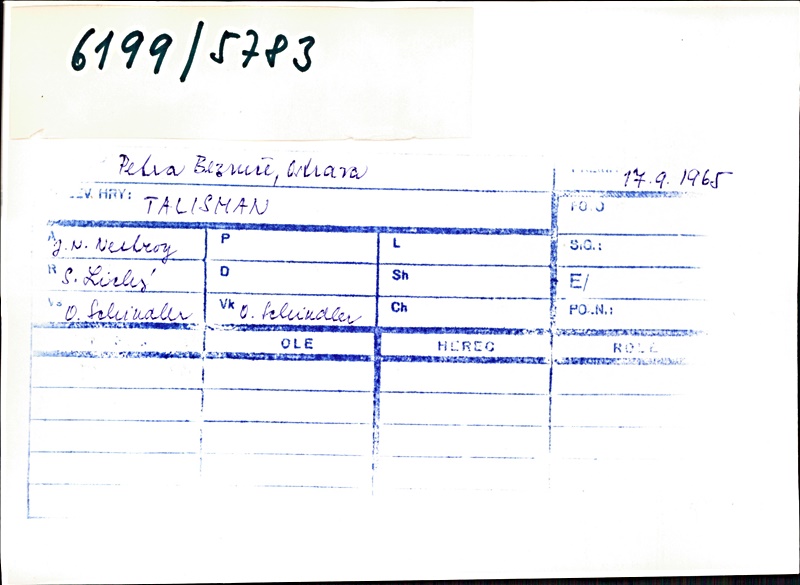 6199/5783
Petra Bezruče, Ostrava
17.9.1965
HRY: TALISMAN
A J. N. Nestroy P L SIG.:
R S. Lichý D Sh E/
O. Schindler Vk O. Schindler Ch PO.N.:
OLE HEREC ROLE